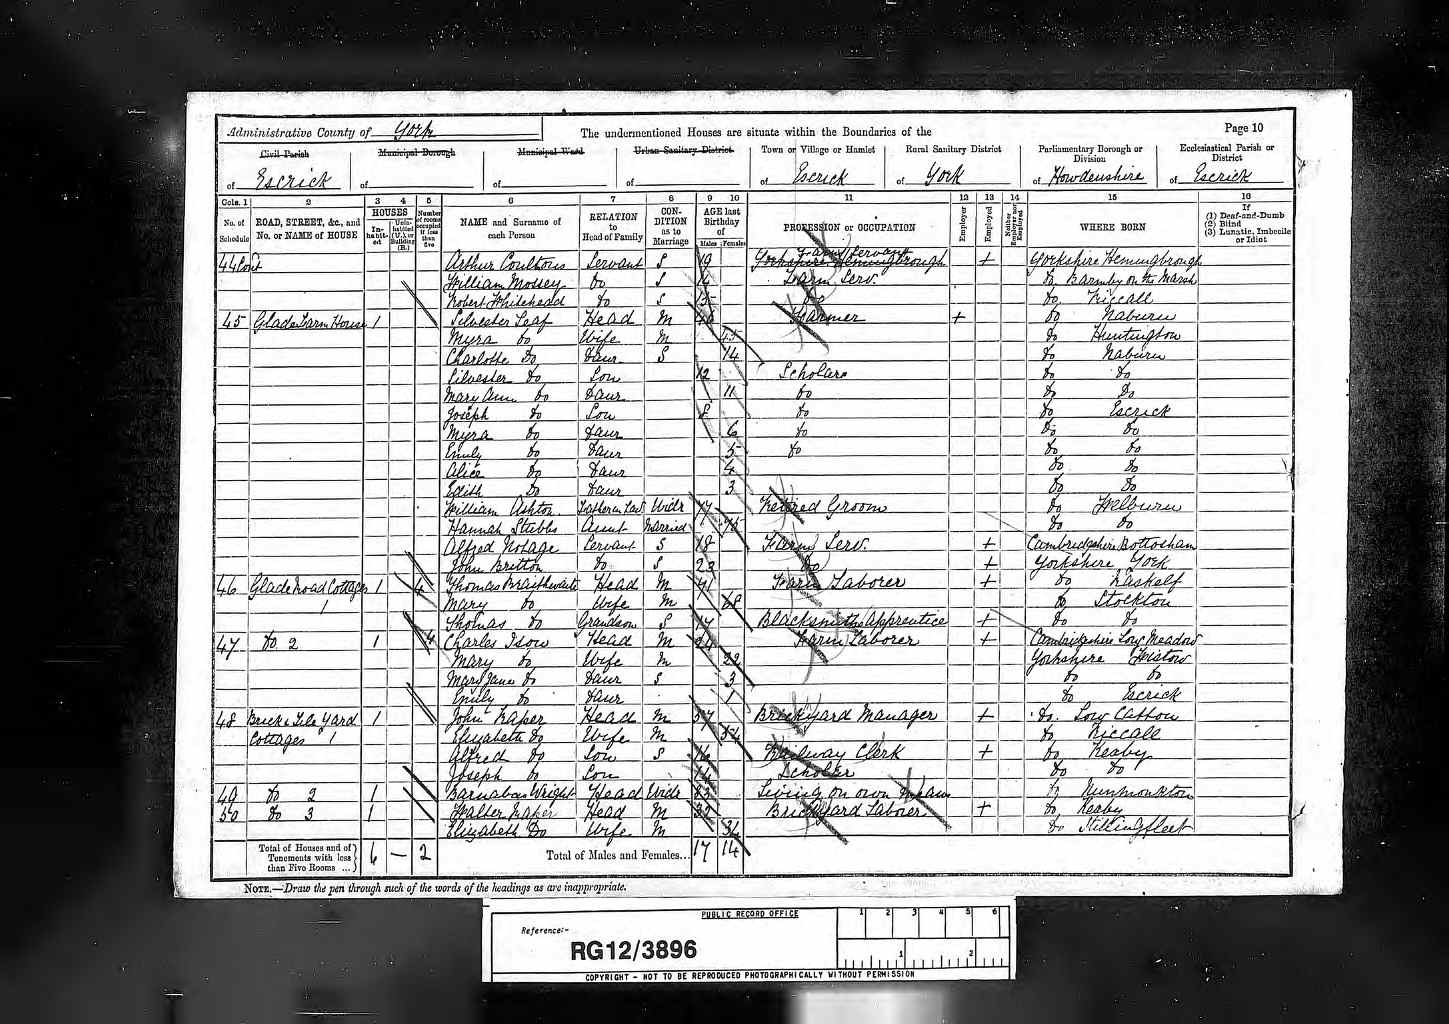 Administrative County of York
The undermentioned Houses are situate within the Boundaries of the
Page 10
Civil Parish of Escrick
Municipal Borough of
Municipal Ward of
Urban Sanitary District of
Town or Village or Hamlet of Escrick
Rural Sanitary District of York
Parliamentary Borough or Division of Howdenshire
Ecclesiastical Parish or District of Escrick
Cols. 1 2 3 4 5 6 7 8 9 10 11 12 13 14 15 16
No. of Schedule
ROAD, STREET, &c., and No. or NAME of HOUSE
HOUSES
Inhabited
Uninhabited (U.), or Building (B.)
Number of rooms occupied if less than five
NAME and Surname of each Person
RELATION to Head of Family
CONDITION as to Marriage
AGE last Birthday of
Males Females
PROFESSION or OCCUPATION
Employer
Employed
Neither Employer nor Employed
WHERE BORN
If (1) Deaf-and-Dumb (2) Blind (3) Lunatic, Imbecile or Idiot
44 Cont Arthur Coultous Servant S 19 Farm Servant Yorkshire Hemingbrough + Yorkshire Hemingbrough
William Mossey Do S Farm Serv. Do Barmby on the Marsh
Robert Whitehead Do S 15 Do Do Riccall
45 Glade Farm House 1 Silvester Leaf Head M Farmer + Do Naburn
Myra Do Wife M 45 Do Huntington
Charlotte Do Daur S 14 Do Naburn
Silvester Do Son 12 Scholar Do Do
Mary Ann Do Daur 11 Do Do Do
Joseph Do Son 8 Do Do Escrick
Myra Do Daur 6 Do Do Do
Emily Do Daur 5 Do Do Do
Alice Do Daur 4 Do Do
Edith Do Daur 3 Do Do
William Ashton Father in Law Widr 77 Retired Groom Do Welburn
Hannah Stubbs Aunt Married 75 Do Do
Alfred Notage Servant S 18 Farm Serv. + Cambridgeshire Bottosham
John Britton Do S 22 Do + Yorkshire York
46 Glade Road Cottages 1 1 4 Thomas Braithwaite Head M 71 Farm Laborer + Do Raskelf
Mary Do Wife M 68 Do Stockton
Thomas Do Grandson S 17 Blacksmiths Apprentice + Do Do
47 Do 2 1 4 Charles Ison Head M 24 Farm Laborer + Cambridgeshire Low Meadow
Mary Do Wife M 22 Yorkshire Wistow
Mary Jane Do Daur S 3 Do Do
Emily Do Daur 1 Do Escrick
48 Brick & Tile Yard Cottages 1 1 John Raper Head M 57 Brickyard Manager + Do. Low Catton
Elizabeth Do Wife M 54 Do Riccall
Alfred Do Son S 16 Railway Clerk + Do Keaby
Joseph Do Son 14 Scholar Do Do
49 Do 2 1 Barnabas Wright Head Widr Living on own Means Do Nunmonkton
50 Do 3 1 Walter Raper Head M 32 Brickyard Laborer + Do Keaby
Elizabeth Do Wife M 34 Do Stillingfleet
Total of Houses and of Tenements with less than Five Rooms ... 6 — 2
Total of Males and Females... 17 14
NOTE.—Draw the pen through such of the words of the headings as are inappropriate.
PUBLIC RECORD OFFICE
Reference:-
RG12/3896
1 2 3 4 5 6
1 2
COPYRIGHT - NOT TO BE REPRODUCED PHOTOGRAPHICALLY WITHOUT PERMISSION